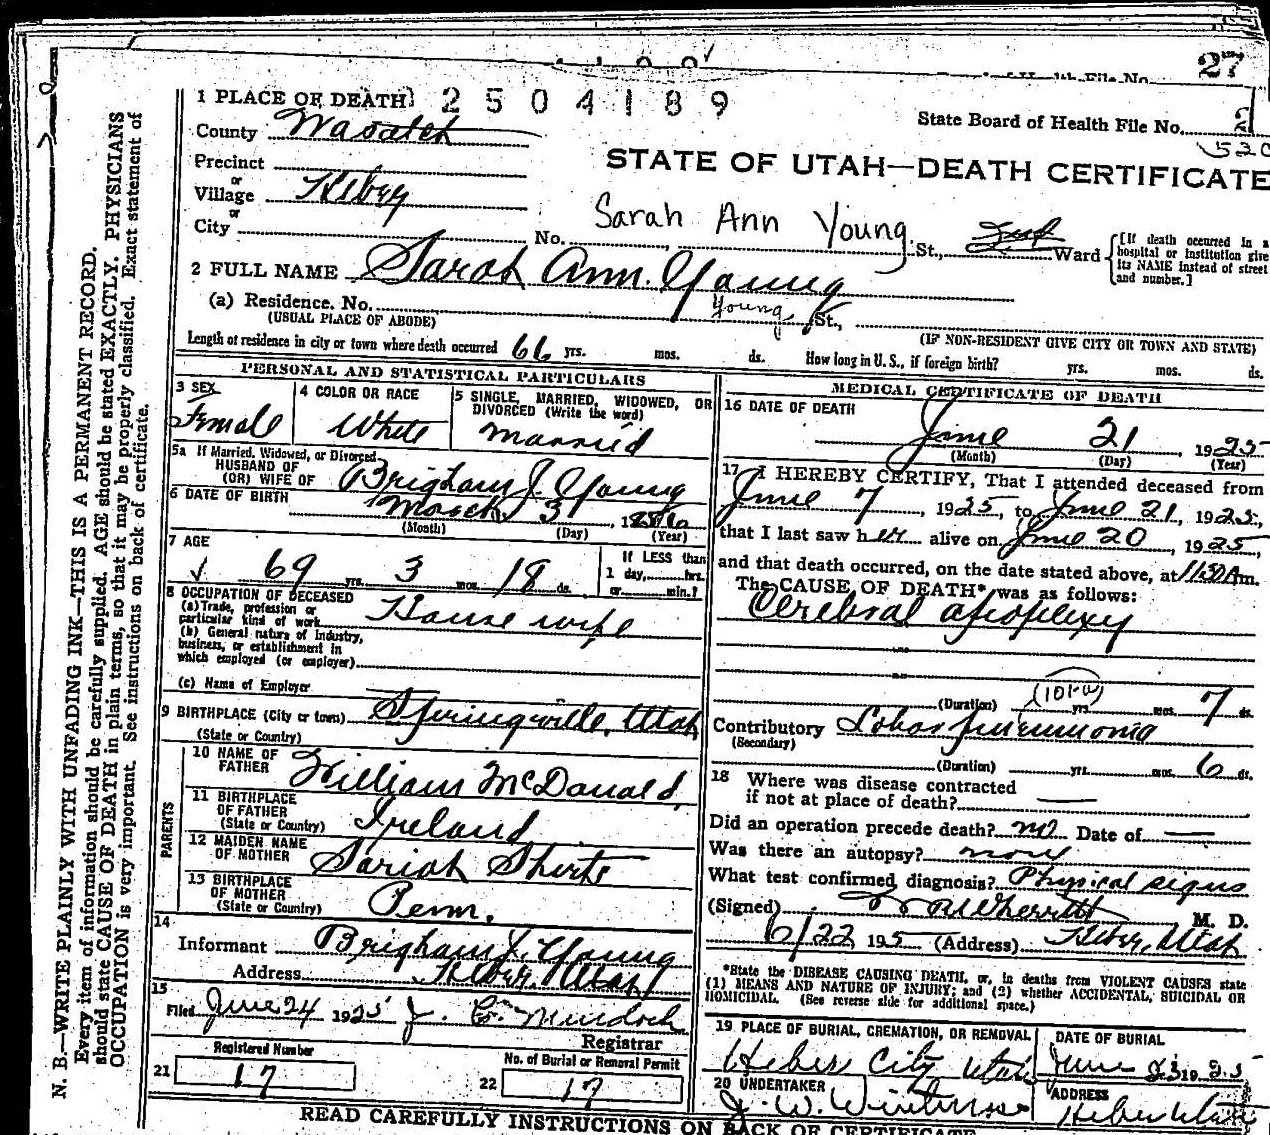 27
1 PLACE OF DEATH 2504189
State Board of Health File No. 2
530
County Wasatch
STATE OF UTAH—DEATH CERTIFICATE
Precinct
or
Village Heber
or
City
No. Sarah Ann Young St., Ward
[If death occurred in a hospital or institution give its NAME instead of street and number.]
2 FULL NAME Sarah Ann. Young
Young
(a) Residence. No. St.,
(USUAL PLACE OF ABODE)
(IF NON-RESIDENT GIVE CITY OR TOWN AND STATE)
Length of residence in city or town where death occurred 66 yrs. mos. ds. How long in U. S., if foreign birth? yrs. mos. ds.
PERSONAL AND STATISTICAL PARTICULARS
3 SEX Female
4 COLOR OR RACE White
5 SINGLE, MARRIED, WIDOWED, OR DIVORCED (Write the word) Married
5a If Married, Widowed, or Divorced
HUSBAND OF
(OR) WIFE OF Brigham J. Young
6 DATE OF BIRTH March 3
(Month) (Day) (Year)
7 AGE 69 yrs. 3 mos. 18 ds.
If LESS than 1 day, hrs. or min.?
8 OCCUPATION OF DECEASED
(a) Trade, profession or particular kind of work House wife
(b) General nature of Industry, business, or establishment in which employed (or employer)
(c) Name of Employer
9 BIRTHPLACE (City or town) Springville, Utah
(State or Country)
PARENTS
10 NAME OF FATHER William McDonald
11 BIRTHPLACE OF FATHER (State or Country) Ireland
12 MAIDEN NAME OF MOTHER Sariah Shirts
13 BIRTHPLACE OF MOTHER (State or Country) Penn.
14
Informant Brigham J. Young
Address Heber Utah
15
Filed June 24 1925 J. Murdock
Registrar
Registered Number
21 17
No. of Burial or Removal Permit
22 17
MEDICAL CERTIFICATE OF DEATH
16 DATE OF DEATH
June 21, 1925
(Month) (Day) (Year)
17 I HEREBY CERTIFY, That I attended deceased from
June 7, 1925, to June 21, 1925,
that I last saw her alive on June 20, 1925,
and that death occurred, on the date stated above, at 11:30 Am.
The CAUSE OF DEATH* was as follows:
Cerebral apoplexy
(Duration) yrs. mos. 7 ds.
Contributory Lobar pneumonia
(Secondary)
(Duration) yrs. mos. 6 ds.
18 Where was disease contracted
if not at place of death?
Did an operation precede death? no Date of
Was there an autopsy? none
What test confirmed diagnosis? Physical signs
(Signed) M. D.
6/22 195 (Address) Heber, Utah
*State the DISEASE CAUSING DEATH, or, in deaths from VIOLENT CAUSES state
(1) MEANS AND NATURE OF INJURY; and (2) whether ACCIDENTAL, SUICIDAL OR
HOMICIDAL. (See reverse side for additional space.)
19 PLACE OF BURIAL, CREMATION, OR REMOVAL
Heber City Utah
DATE OF BURIAL
June 23 1925
20 UNDERTAKER
J. W. Winterrose
ADDRESS
Heber Utah
READ CAREFULLY INSTRUCTIONS ON BACK OF CERTIFICATE
N. B.—WRITE PLAINLY WITH UNFADING INK—THIS IS A PERMANENT RECORD.
Every item of information should be carefully supplied. AGE should be stated EXACTLY. PHYSICIANS
should state CAUSE OF DEATH in plain terms, so that it may be properly classified. Exact statement of
OCCUPATION is very important. See instructions on back of certificate.